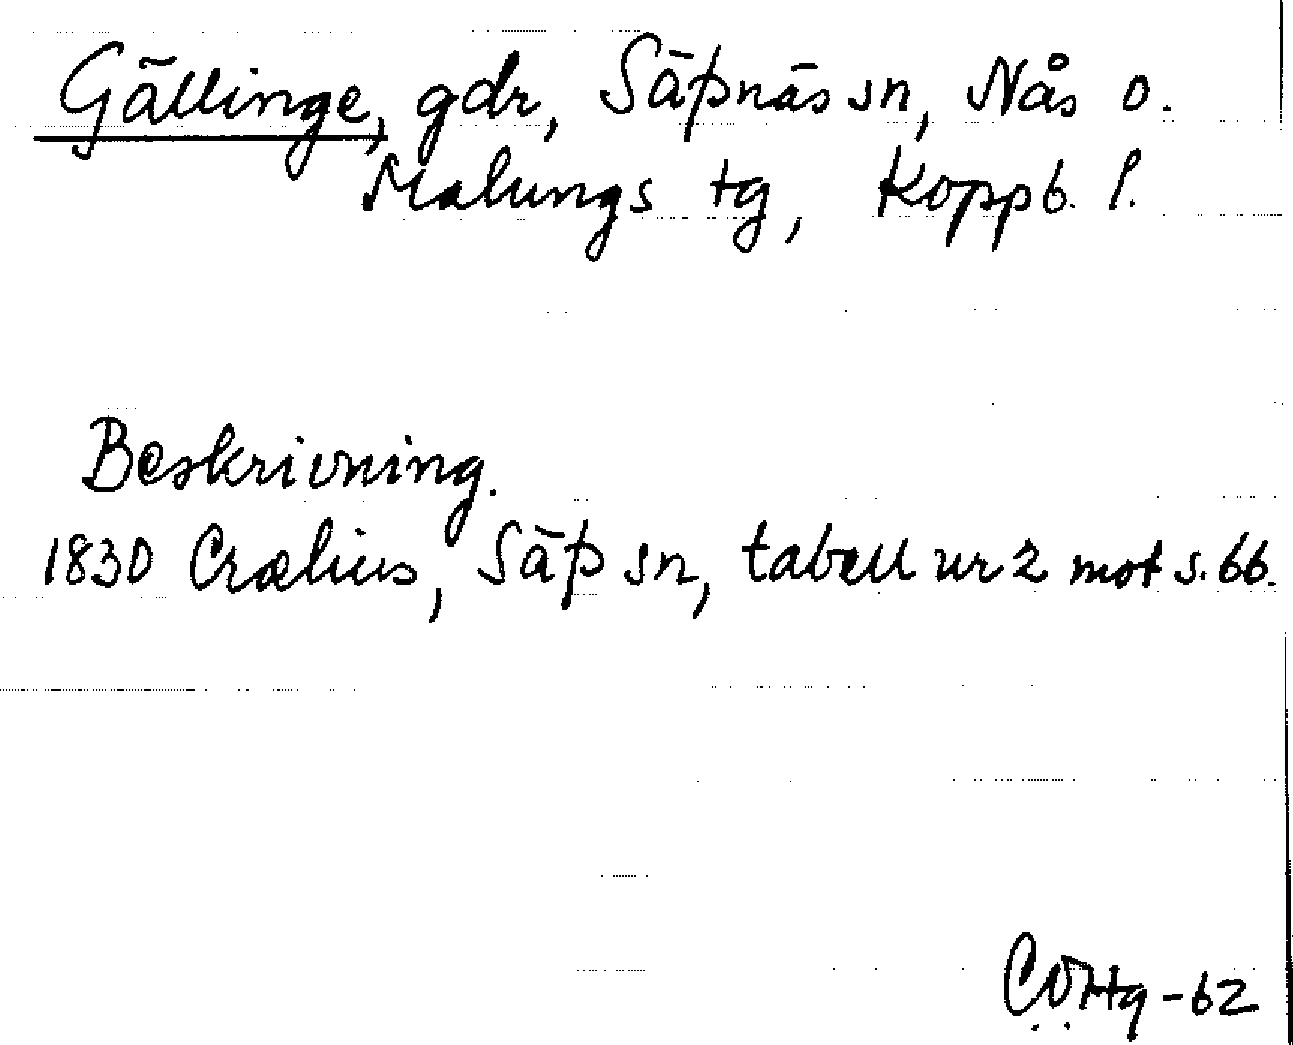 Gällinge, gdr, Säfsnäs sn, Nås o.
Malungs tg, Koppb. l.
Beskrivning.
1830 Crælius, Säfs sn, tabell nr 2 mot s. 66.
-62